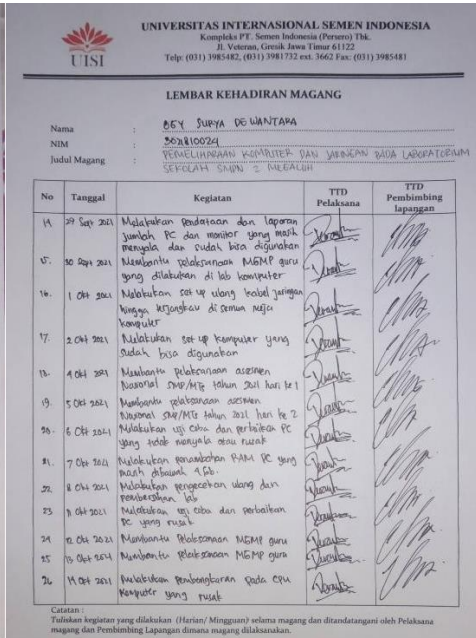 UNIVERSITAS INTERNASIONAL SEMEN INDONESIA
Kompleks PT. Semen Indonesia (Persero) Tbk.
Jl. Veteran, Gresik Jawa Timur 61122
Telp: (031) 3985482, (031) 3981732 ext. 3662 Fax: (031) 3985481
UISI
LEMBAR KEHADIRAN MAGANG
Nama : SURYA DEWANTARA
NIM : 3021810024
Judul Magang : PEMELIHARAAN KOMPUTER DAN JARINGAN PADA LABORATORIUM
SEKOLAH SMPN 2 MEGALUH
No Tanggal Kegiatan TTD Pelaksana TTD Pembimbing lapangan
14. 29 Sept 2021 Melakukan pendataan dan laporan
jumlah PC dan monitor yang masih
menyala dan sudah bisa digunakan
15. 30 Sept 2021 Membantu pelaksanaan MGMP guru
yang dilakukan di lab komputer
16. 1 Okt 2021 Melakukan set up ulang kabel jaringan
hingga terjangkau di semua meja
komputer
17. 2 Okt 2021 Melakukan set up komputer yang
sudah bisa digunakan
18. 4 Okt 2021 Membantu pelaksanaan asesmen
Nasional SMP/MTs tahun 2021 hari ke 1
19. 5 Okt 2021 Membantu pelaksanaan asesmen
Nasional SMP/MTs tahun 2021 hari ke 2
20. 6 Okt 2021 Melakukan uji coba dan perbaikan PC
yang tidak menyala atau rusak
21. 7 Okt 2021 Melakukan penambahan RAM PC yang
masih dibawah 4 Gb.
22. 8 Okt 2021 Melakukan pengecekan ulang dan
pembersihan lab
23 11 Okt 2021 Melakukan uji coba dan perbaikan
PC yang rusak
24 12 Okt 2021 Membantu Pelaksanaan MGMP guru
25 13 Okt 2021 Membantu pelaksanaan MGMP guru
26 14 Okt 2021 Melakukan pembongkaran pada CPU
komputer yang rusak
Catatan :
Tuliskan kegiatan yang dilakukan (Harian/ Mingguan) selama magang dan ditandatangani oleh Pelaksana
magang dan Pembimbing Lapangan dimana magang dilaksanakan.